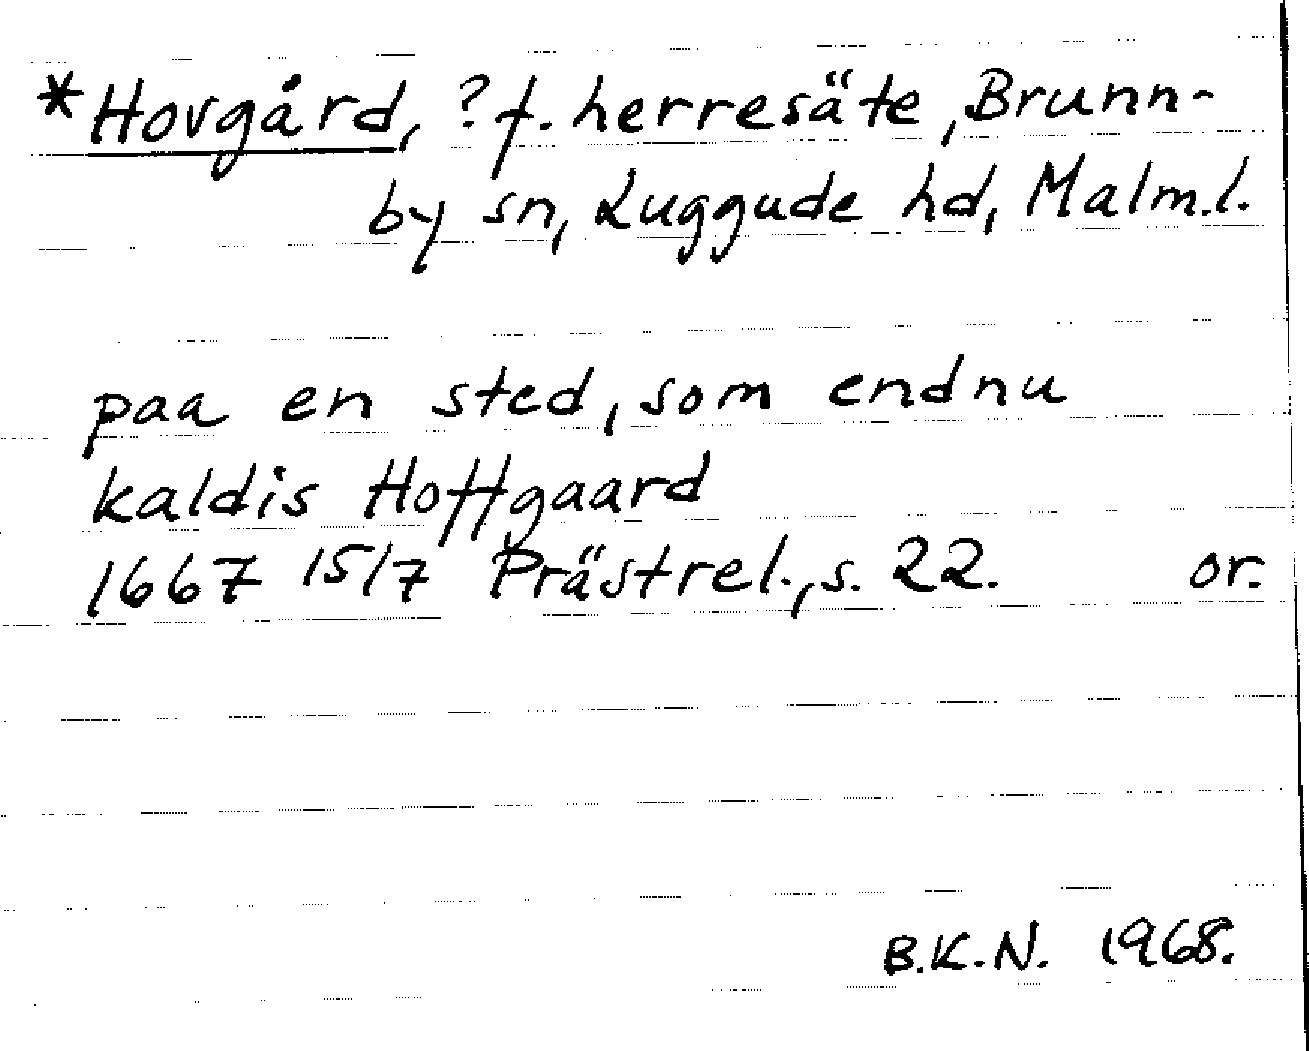 *Hovgård, ?f. herresäte, Brunn-
by sn, Luggude hd, Malm.l.
paa en sted, som endnu
kaldis Hoffgaard
1667 15/7 Prästrel., s. 22. or.
B.K.N. 1968.